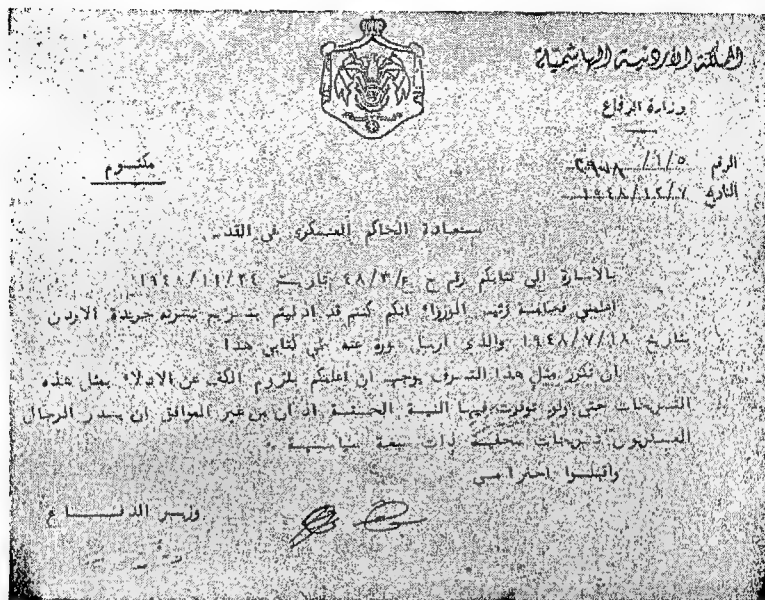 المملكة الأردنية الهاشمية
وزارة الدفاع
مكتوم
الرقم ٥/١/
التاريخ ١٩٤٨/١٢/٧
سعادة الحاكم العسكري في القدس
بالاشارة الى كتابكم رقم ح ع/٤٨/٣ تاريخ ١٩٤٨/١١/٢٤
اعلمني فخامة رئيس الوزراء انكم كنتم قد ادليتم بتصريح نشرته جريدة الاردن
بتاريخ ١٩٤٨/٧/١٨ والذي ارسل صورة عنه طي كتابي هذا .
ان تكرر مثل هذا التصرف يوجب ان اعلمكم بلزوم الكف عن الادلاء بمثل هذه
التصريحات حتى ولو توفرت فيها النية الحسنة اذ ان من غير الموافق ان يصدر الرجال
العسكريون تصريحات محلية ذات صبغة سياسية .
واقبلوا احترامي
وزير الدفاع